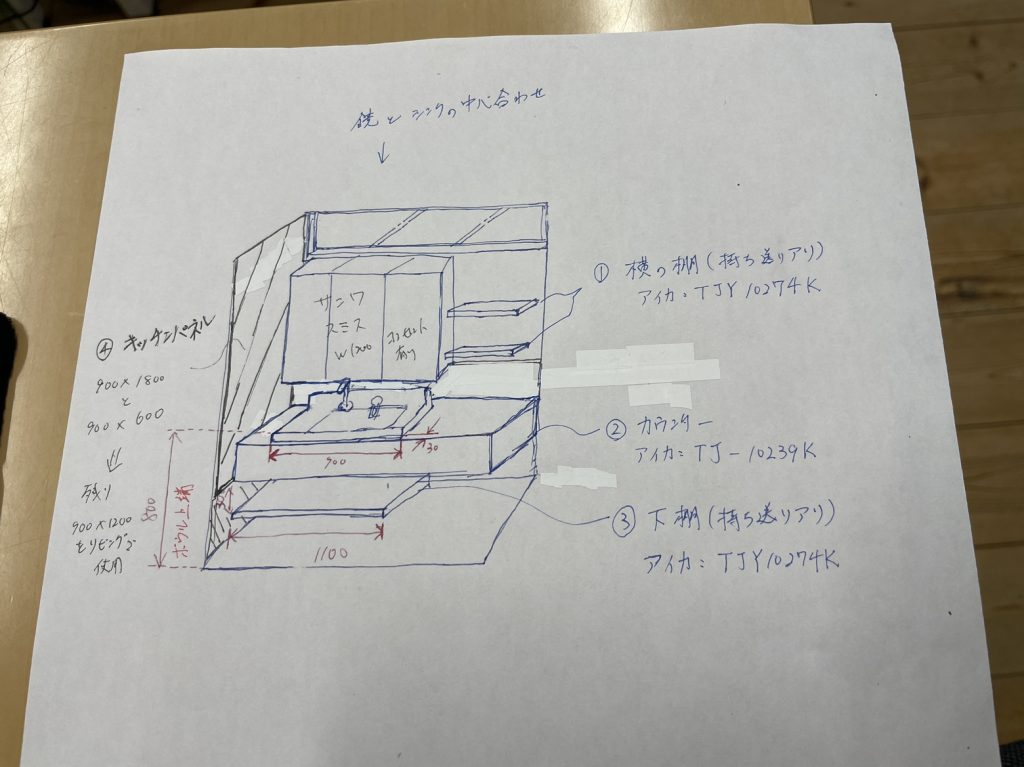 鏡とシンクの中心合わせ
↓
① 横の棚(持ち送りアリ)
アイカ:TJY10274K
サンワ
スミス
W1200
コンセント
有り
④ キッチンパネル
900×1800
と
900×600
⇓
残り
900×1200
をリビングで
使用
② カウンター
アイカ:TJ-10239K
③ 下棚(持ち送りアリ)
アイカ:TJY10274K
900
30
800
ボウル上端
1100